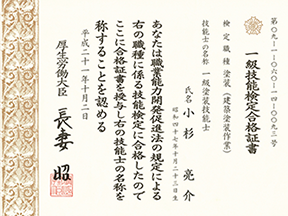 第〇九一-一-〇六〇-一四-〇〇九三号
一級技能検定合格証書
検定職種 塗装(建築塗装作業)
技能士の名称 一級塗装技能士
氏名 小杉亮介
昭和四十七年十月二十三日生
あなたは職業能力開発促進法の規定による
右の職種に係る技能検定に合格したので
ここに合格証書を授与し右の技能士の名称を
称することを認める
平成二十一年十月二日
厚生労働大臣 長妻 昭